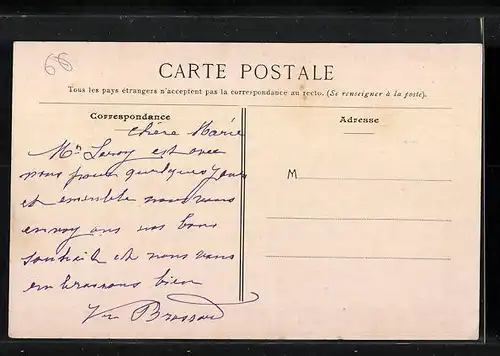 66
CARTE POSTALE
Tous les pays étrangers n'acceptent pas la correspondance au recto. (Se renseigner à la poste).
Correspondance
Adresse
chère Marie
Leroy est avec
nous pour quelques jours
et ensemble nous vous
envoy ons nos bons
souhaits et nous vous
embrassons bien
M